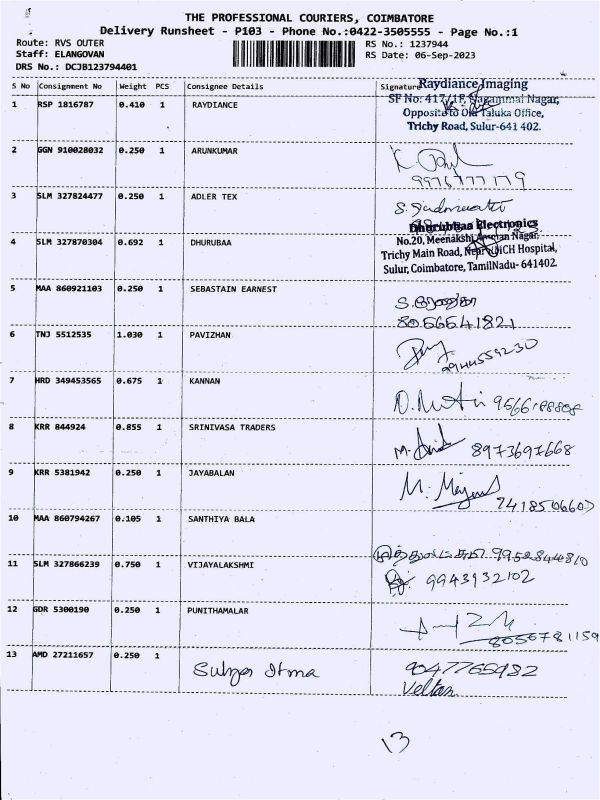 THE PROFESSIONAL COURIERS, COIMBATORE
Delivery Runsheet - P103 - Phone No.:0422-3505555 - Page No.:1
Route: RVS OUTER
RS No.: 1237944
Staff: ELANGOVAN
RS Date: 06-Sep-2023
DRS No.: DCJB123794401
S No Consignment No Weight PCS Consignee Details Signature
Raydiance Imaging
1 RSP 1816787 0.410 1 RAYDIANCE
SF No: 417/1F, Nagammal Nagar,
Opposite to Old Taluka Office,
Trichy Road, Sulur-641 402.
2 GGN 910028032 0.250 1 ARUNKUMAR
9976777179
3 SLM 327824477 0.250 1 ADLER TEX
S.
Dhurubhaa Electronics
4 SLM 327870304 0.692 1 DHURUBAA
No.20, Meenakshi Nagar,
Trichy Main Road, Near Hospital,
Sulur, Coimbatore, TamilNadu- 641402.
5 MAA 860921103 0.250 1 SEBASTAIN EARNEST
8056541821
6 TNJ 5512535 1.030 1 PAVIZHAN
9944559230
7 HRD 349453565 0.675 1 KANNAN
8 KRR 844924 0.855 1 SRINIVASA TRADERS
8973697668
9 KRR 5381942 0.250 1 JAYABALAN
M.
7418506607
10 MAA 860794267 0.105 1 SANTHIYA BALA
9952844810
11 SLM 327866239 0.750 1 VIJAYALAKSHMI
9943932102
12 GDR 5300190 0.250 1 PUNITHAMALAR
8056781159
13 AMD 27211657 0.250 1
9047765982
Veltan
13